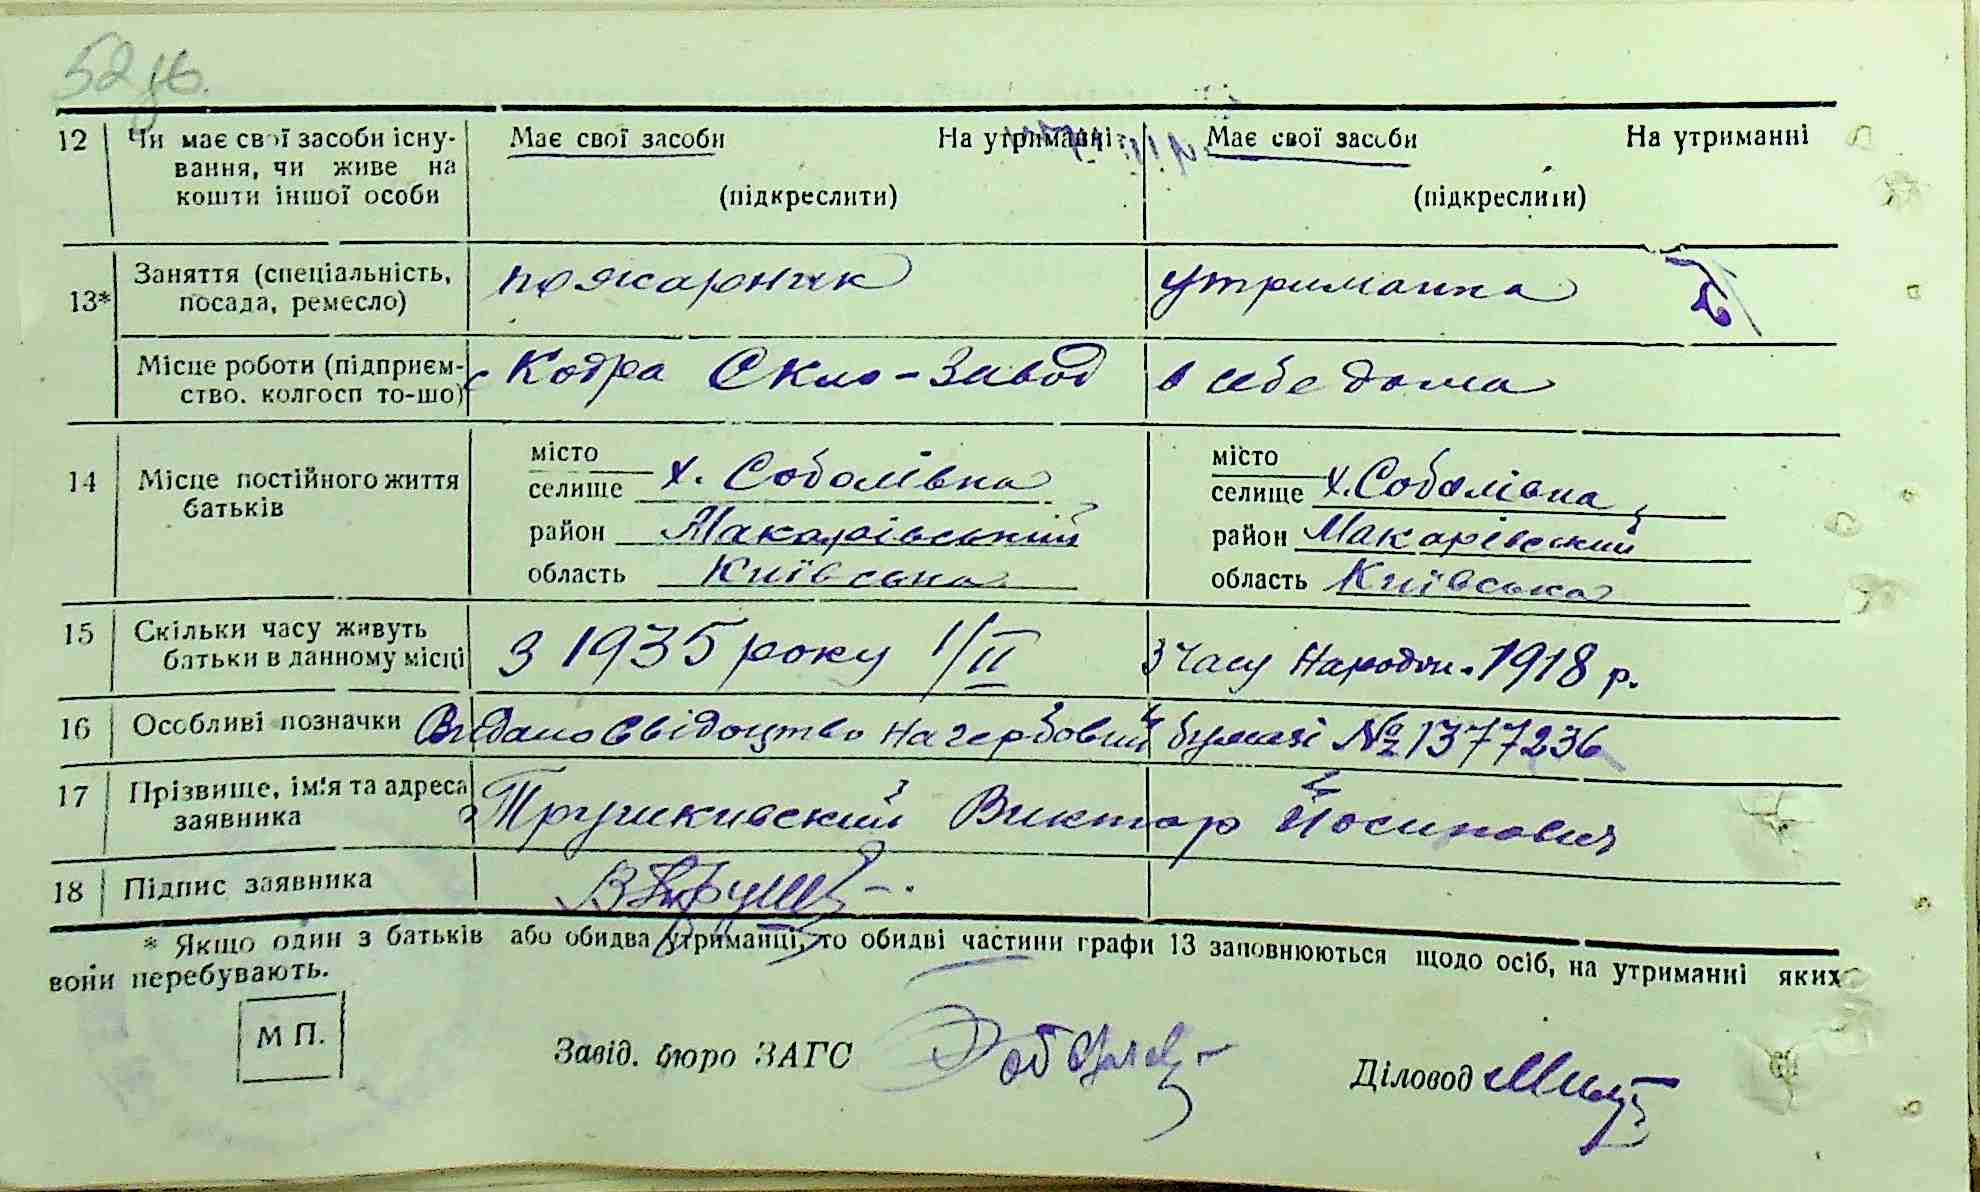 52 зв.
12 Чи має свої засоби існу- Має свої засоби На утриманні Має свої засоби На утриманні
вання, чи живе на
кошти іншої особи (підкреслити) (підкреслити)
13* Заняття (спеціальність, пожарник утриманка
посада, ремесло)
Місце роботи (підприєм- с Кодра Скло-Завод в себе дома
ство. колгосп то-що)
14 Місце постійного життя батьків
місто
селище х. Соболівка
район Макарівський
область Київська
місто
селище х. Соболівка
район Макарівський
область Київська
15 Скільки часу живуть З 1935 року 1/II З часу Народж. 1918 р.
батьки в данному місці
16 Особливі позначки Видано Свідоцтво на гербовий бумазі № 1377236
17 Прізвище, ім'я та адреса Трушкивский Виктор Йосипович
заявника
18 Підпис заявника
* Якщо один з батьків або обидва утриманці, то обидві частини графи 13 заповнюються щодо осіб, на утриманні яких
вони перебувають.
М П.
Завід. бюро ЗАГС
Діловод